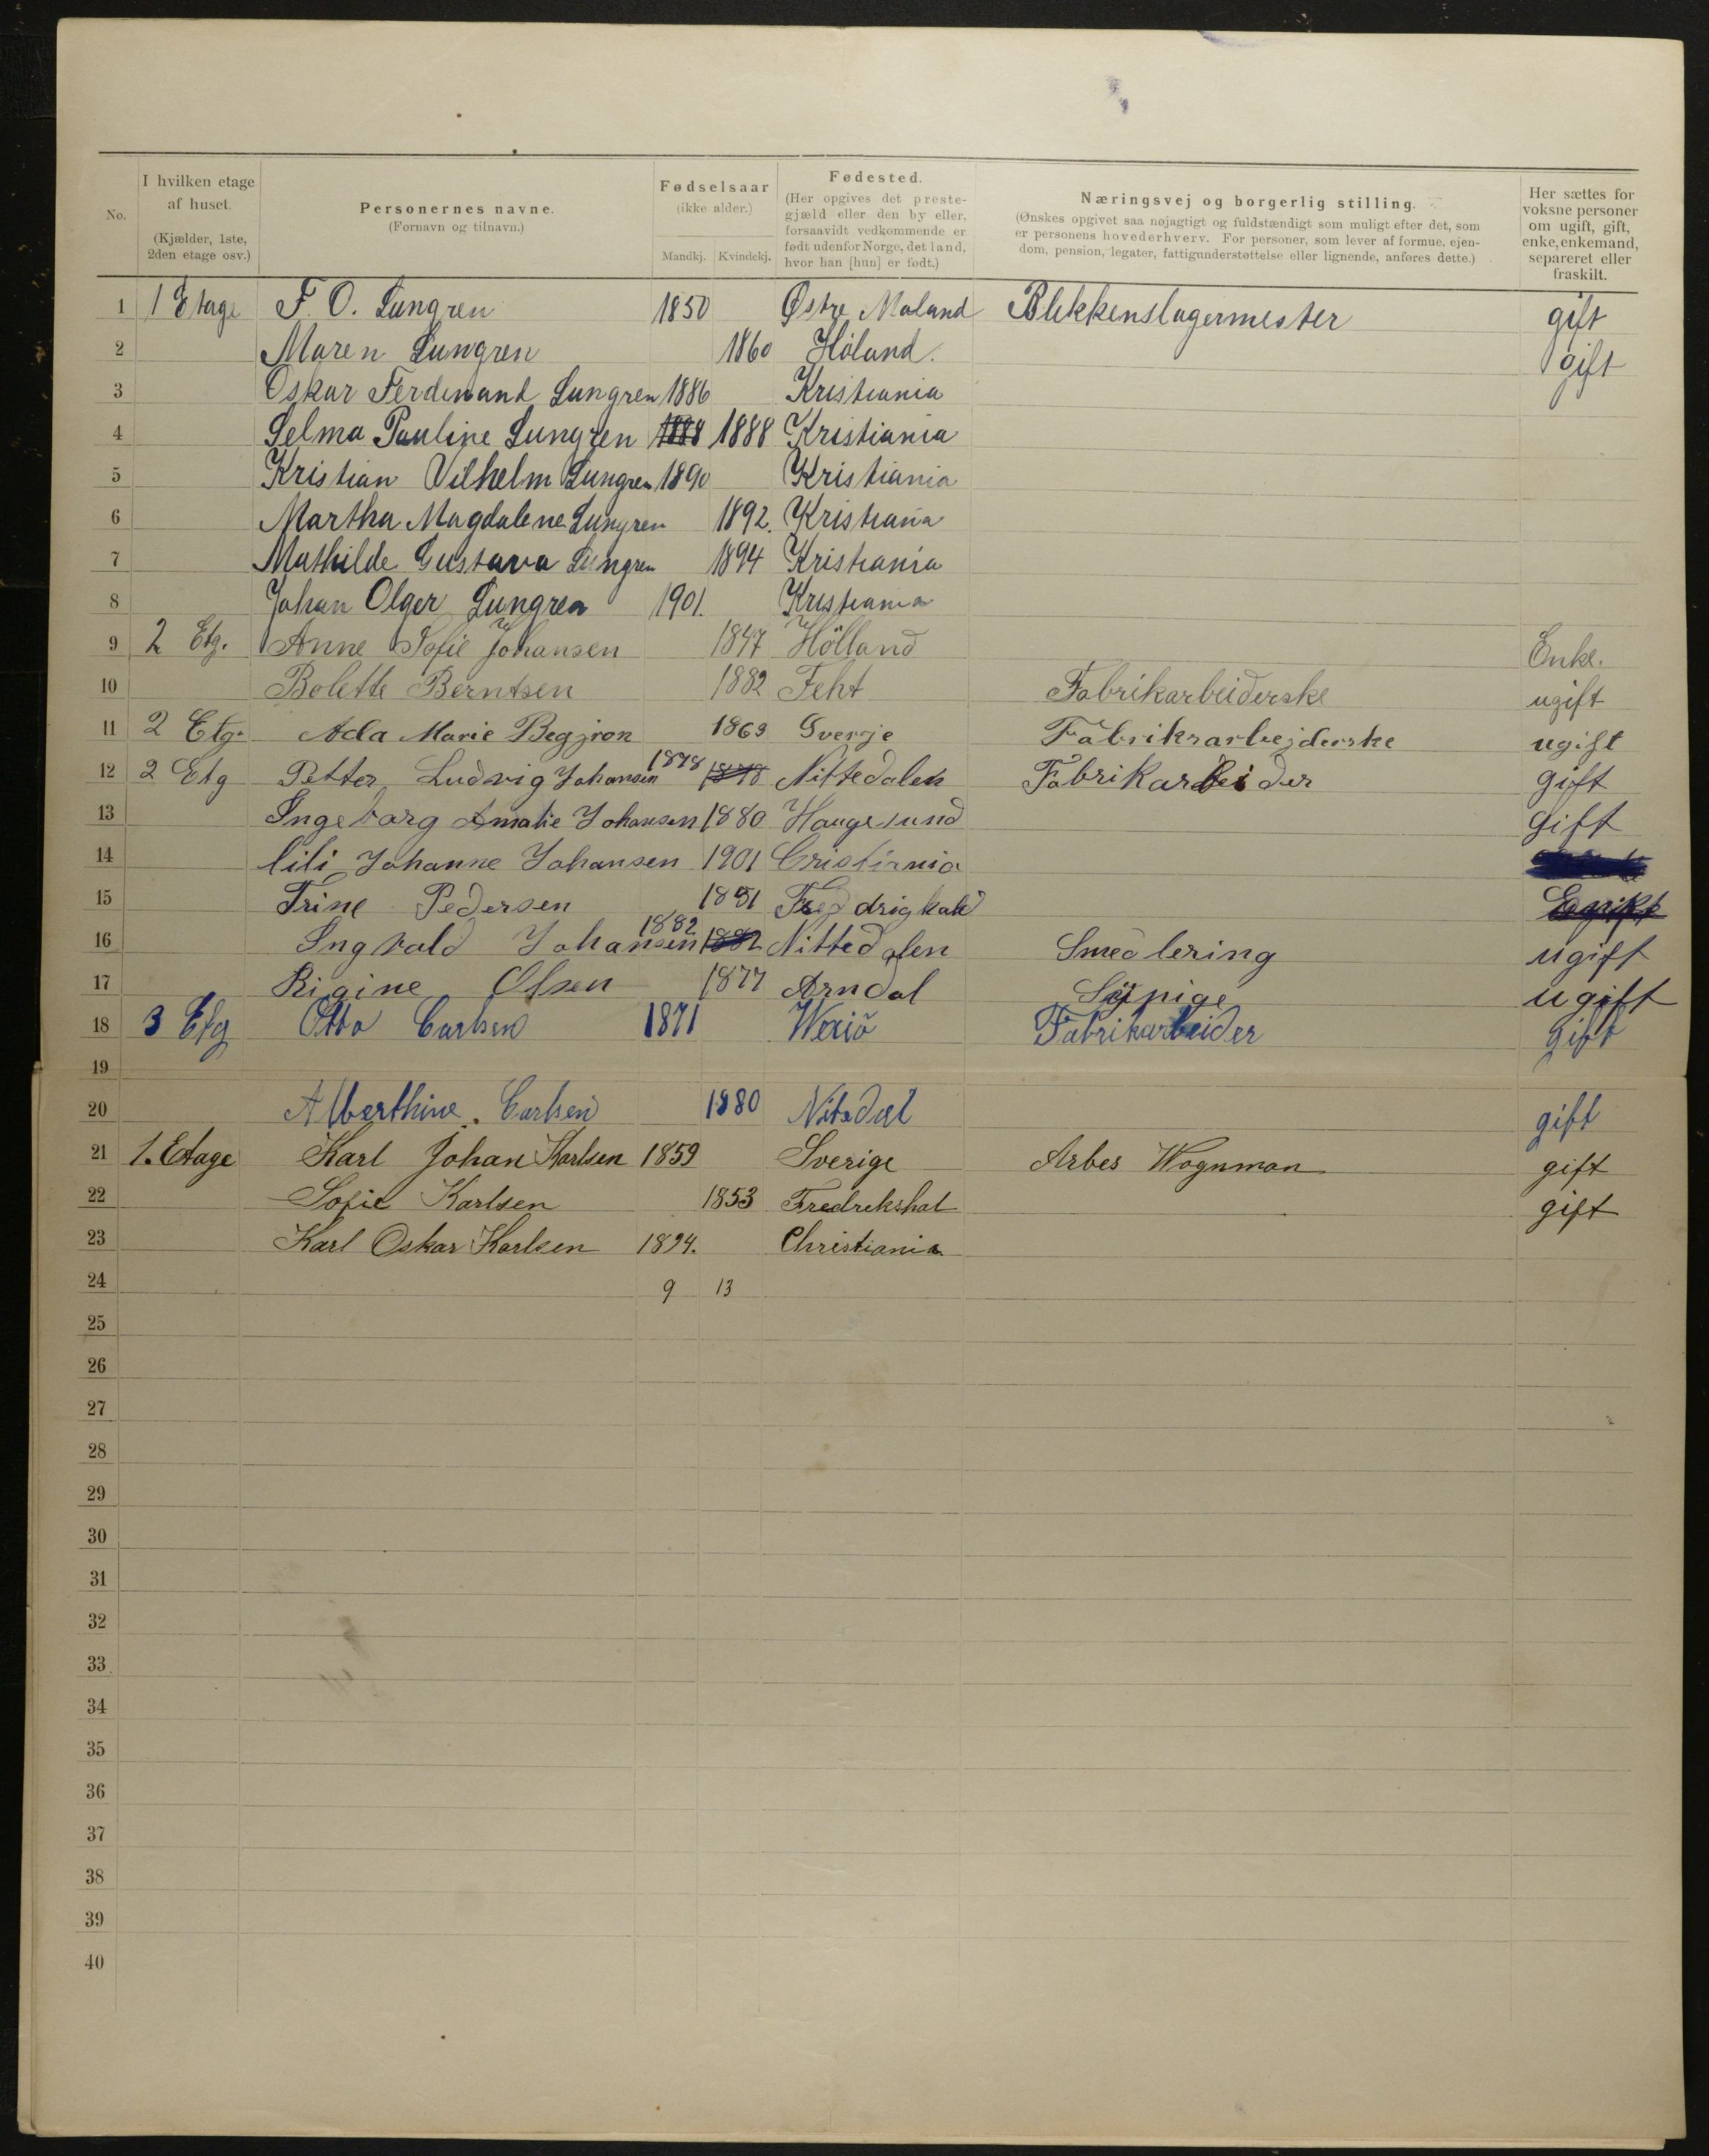 No. I hvilken etage af huset. (Kjælder, 1ste, 2den etage osv.) Personernes navne. (Fornavn og tilnavn.) Fødselsaar (ikke alder.) Mandkj. Kvindekj. Fødested. (Her opgives det prestegjæld eller den by eller, forsaavidt vedkommende er født udenfor Norge, det land, hvor han [hun] er født.) Næringsvej og borgerlig stilling. (Ønskes opgivet saa nøjagtigt og fuldstændigt som muligt efter det, som er personens hovederhverv. For personer, som lever af formue, ejendom, pension, legater, fattigunderstøttelse eller lignende, anføres dette.) Her sættes for voksne personer om ugift, gift, enke, enkemand, separeret eller fraskilt.
1 1 Etage F. O. Lungren 1850 Østre Moland Blikkenslagermester gift
2 Maren Lungren 1860 Höland. gift
3 Oskar Ferdinand Lungren 1886 Kristiania
4 Selma Pauline Lungren 1888 1888 Kristiania
5 Kristian Vilhelm Lungren 1890 Kristiania
6 Martha Magdalene Lungren 1892. Kristiania
7 Mathilde Gustava Lungren 1894 Kristiania
8 Johan Olger Lungren 1901. Kristiania
9 2 Etg. Anne Sofie Johansen 1847 Hölland Enke.
10 Bolette Berntsen 1882 Feht Fabrikarbeiderske ugift
11 2 Etg. Ada Marie Begjron 1869 Sverje Fabriksarbejderske ugift
12 2 Etg Petter Ludvig Johansen 1878 1878 Nittedalen Fabrikarbeider gift
13 Ingeborg Amalie Johansen 1880 Haugesund gift
14 Lili Johanne Johansen 1901 Cristiania
15 Trine Pedersen 1851 Fredrigkald
16 Ingvald Johansen 1882 1882 Nittedalen Smedlering ugift
17 Rigine Olsen 1877 Arndal Sypige ugift
18 3 Etg Otto Carlsen 1871 Wexiö Fabrikarbeider gift
19
20 Alberthine. Carlsen 1880 Nitedal gift
21 1. Etage Karl Johan Karlsen 1859 Sverige Arbes Wognman gift
22 Sofie Karlsen 1853 Fredrekshal gift
23 Karl Oskar Karlsen 1894. Christiania
24 9 13
25
26
27
28
29
30
31
32
33
34
35
36
37
38
39
40